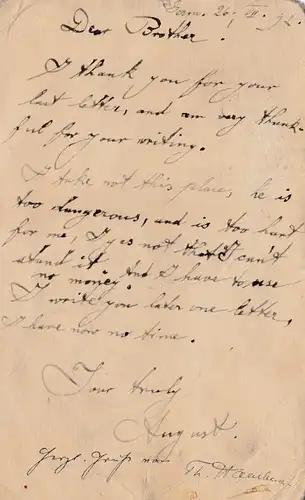 Germ. 26. VII. 92.
Dear Brother.
I thank you for your
last letter, and am very thank-
ful for your writing.
I take not this place, he is
too dangerous, and is too hart
for me, I yes not that I can't
stand it. And I have to use
no money.
I write you later one letter,
I have now no time.
Your truly
August.
Herzl. Grüße von Th.